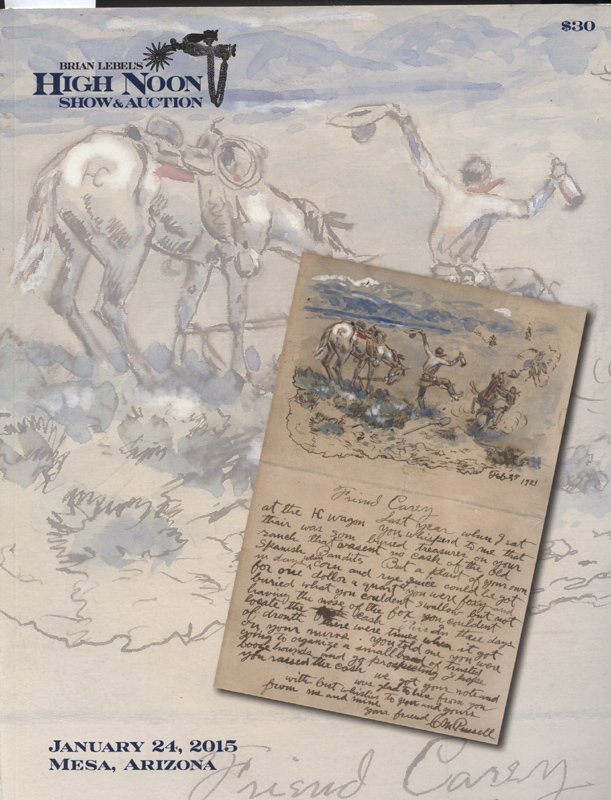 $30
BRIAN LEBEL'S
HIGH NOON
SHOW & AUCTION
Friend Carey
Last year when I sat
at the HC wagon you whispered to me that
thair was som buried treasures on your
ranch that wasent no cash of the old
Spanish Bandits But a plant of your own
in days when corn and rye juice could be got
for one dollar a quart you were foxy and
buried what you couldent swallow but not
having the nose of the fox you couldent
locate the cash these days
of drouth There were times when it got
on your nurvs. you told me you were
going to organize a small band of trusted
booze hounds and go prospecting I hope
you rassed the cash we got your note and
was glad to hear from you
with best wishes to you and yours
from me and mine
your friend CM Russell
JANUARY 24, 2015
MESA, ARIZONA
Friend Carey